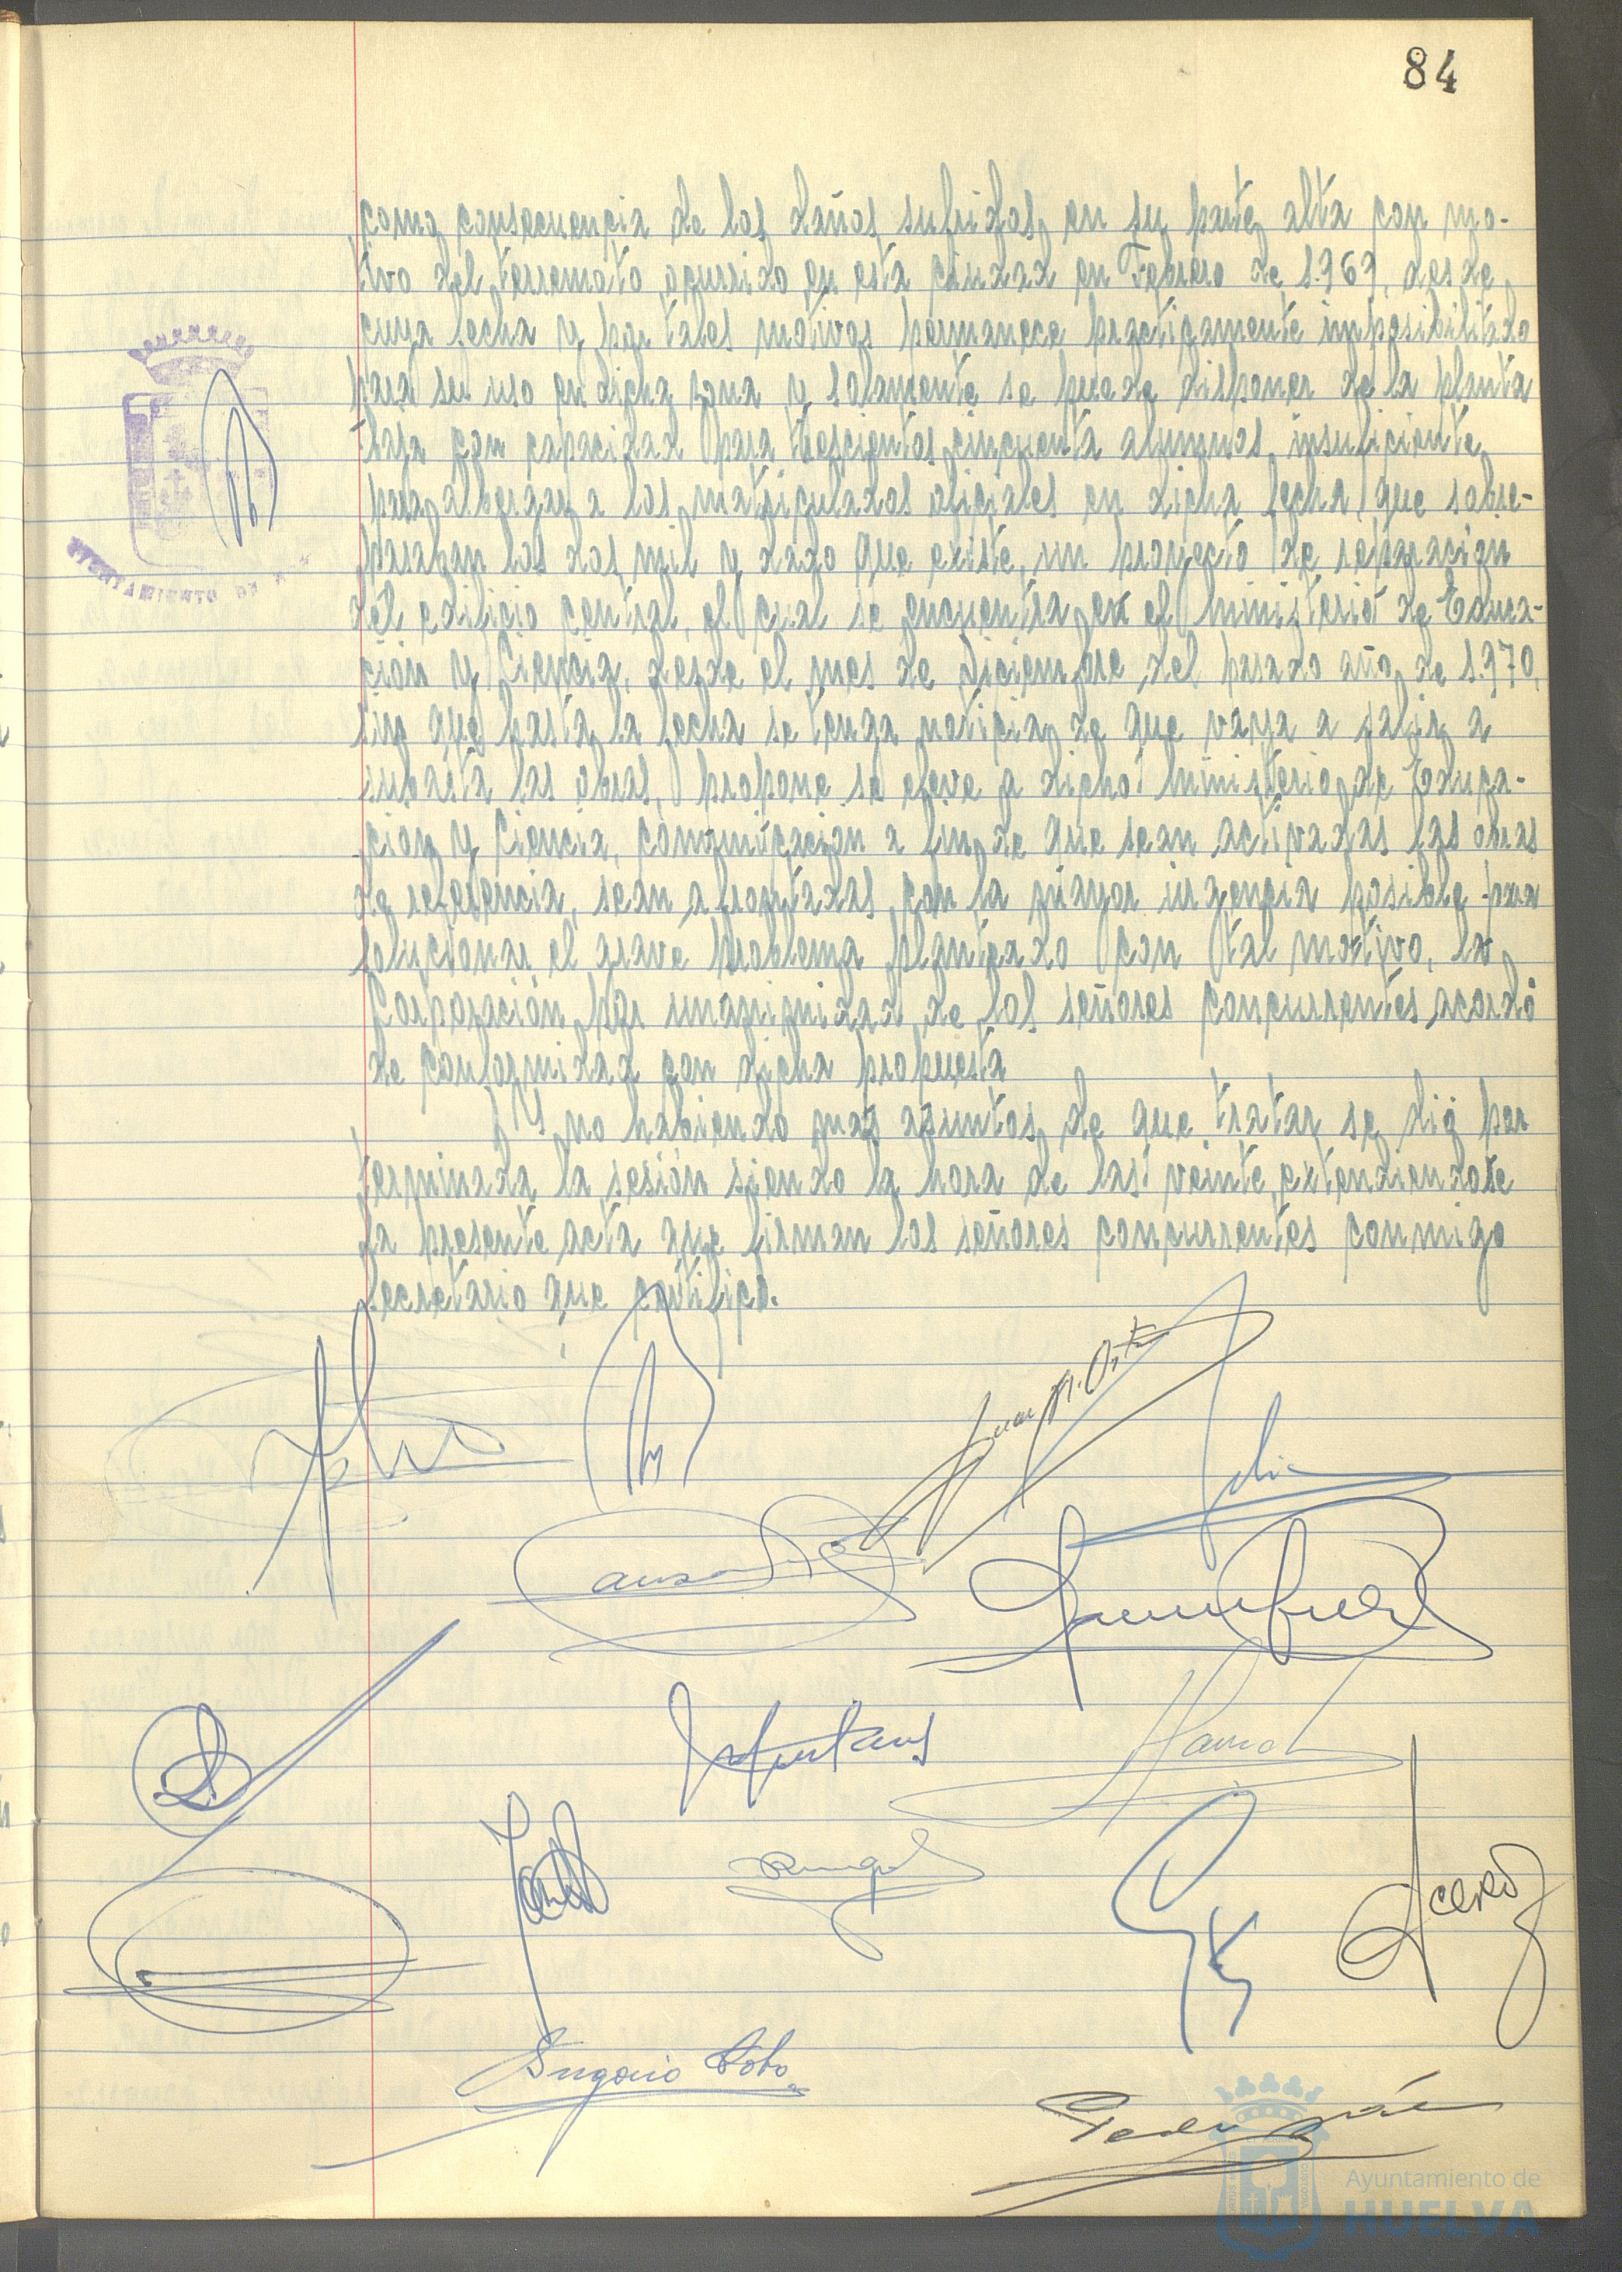 84
como consecuencia de los daños sufridos en su parte alta con mo-
tivo del terremoto ocurrido en esta ciudad en Febrero de 1.969, desde
cuya fecha y por tales motivos permanece practicamente imposibilitado
para su uso en dicha zona y solamente se puede disponer de la planta
baja con capacidad para trescientos cincuenta alumnos, insuficiente
para albergar a los matriculados oficiales en dicha fecha, que sobre-
pasaban los dos mil y dado que existe un proyecto de reparación
del edificio central, el cual se encuentra en el Ministerio de Educa-
ción y Ciencia, desde el mes de Diciembre del pasado año de 1.970,
sin que hasta la fecha se tenga noticia de que vaya a salir a
subasta las obras, propone se eleve a dicho Ministerio de Educa-
ción y Ciencia, comunicacion a fin de que sean activadas las obras
de referencia, sean afrontadas con la mayor urgencia posible para
solucionar el grave problema planteado con tal motivo, la
Corporación por unanimidad de los señores concurrentes acordó
de conformidad con dicha propuesta
Y no habiendo mas asuntos de que tratar se dió por
terminada la sesión siendo la hora de las veinte, extendiendose
la presente acta que firman los señores concurrentes conmigo
Secretario que certifico.
AYUNTAMIENTO DE
Acero
Ayuntamiento de
HUELVA